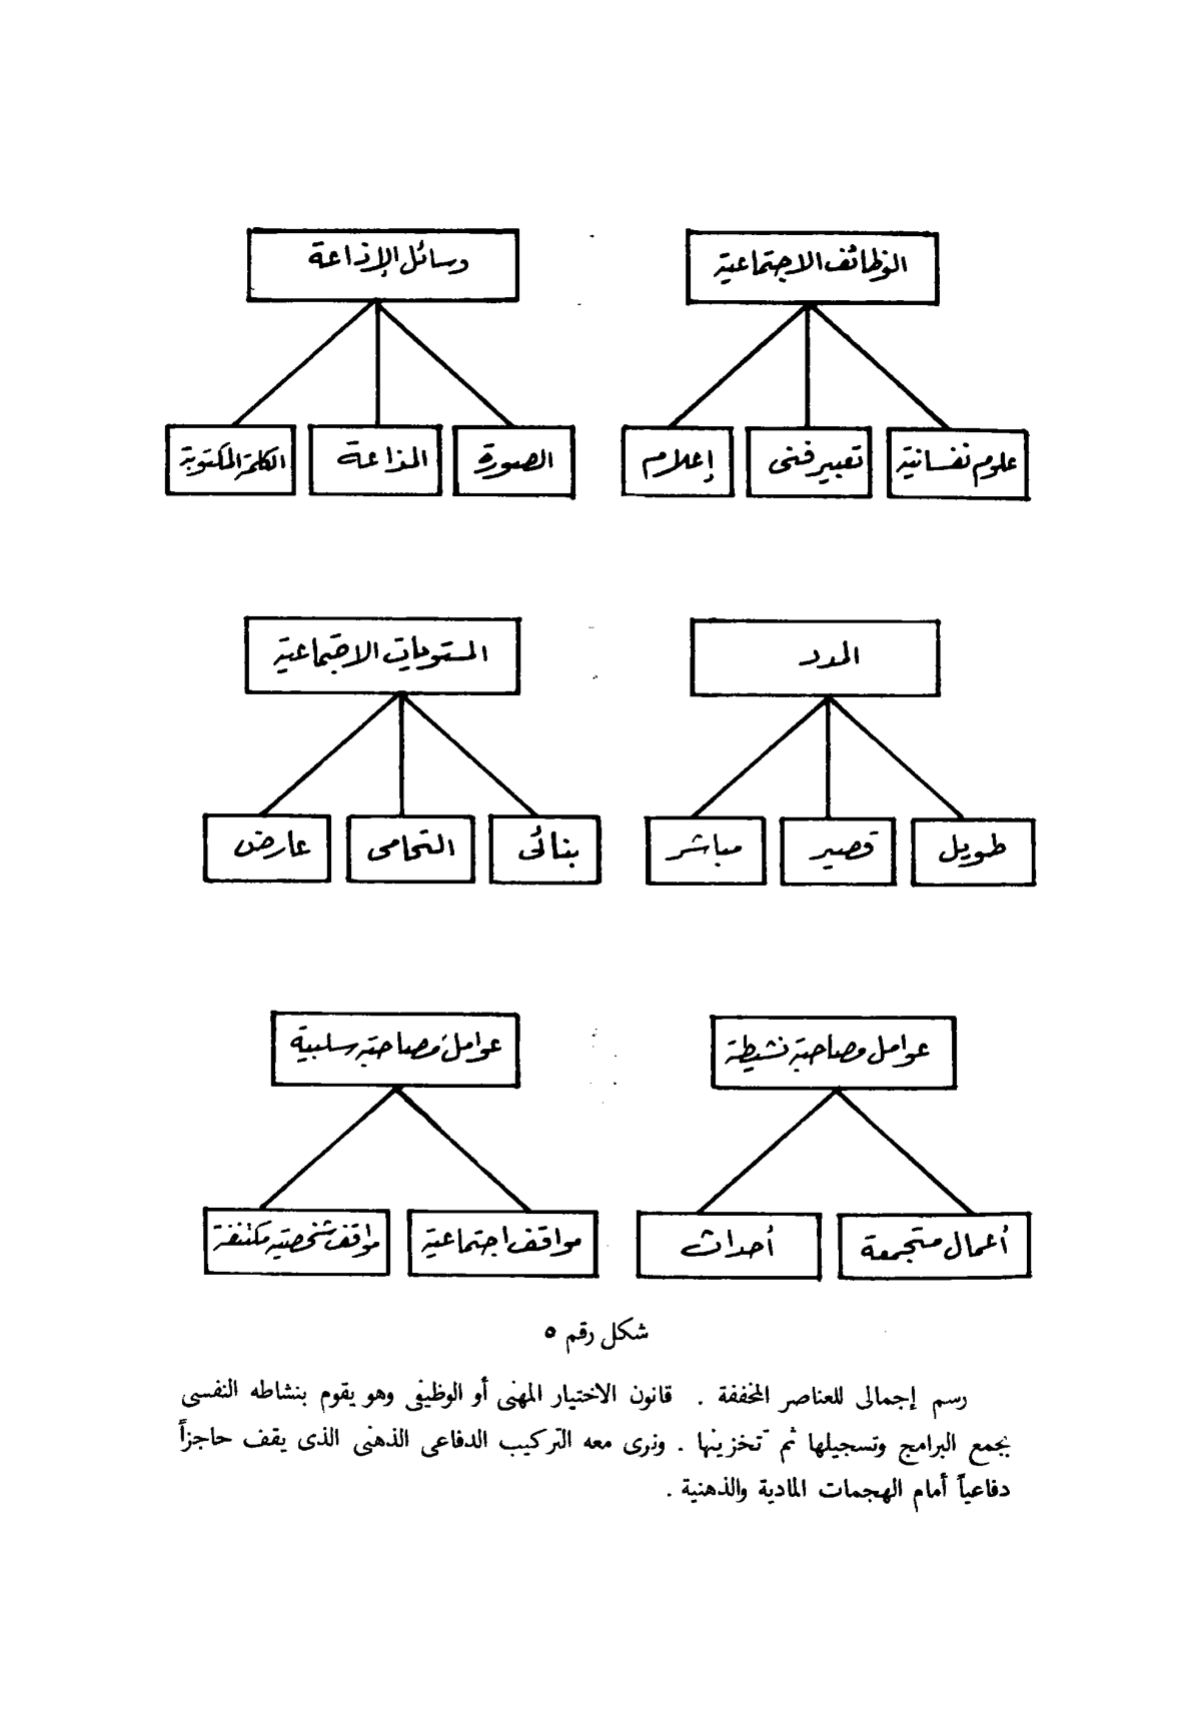 الوظائف الاجتماعية
علوم نفسانية
تعبير فنى
إعلام
وسائل الإذاعة
الصورة
المذاعة
الكلمة المكتوبة
المدد
طويل
قصير
مباشر
المستويات الاجتماعية
بنائى
التحامى
عارض
عوامل مصاحبة نشيطة
أعمال متجمعة
أحداث
عوامل مصاحبة سلبية
مواقف اجتماعية
مواقف شخصية مكتنفة
شكل رقم ٥
رسم إجمالى للعناصر المخففة . قانون الاختيار المهنى أو الوظيفى وهو يقوم بنشاطه النفسى
بجمع البرامج وتسجيلها ثم تخزينها . ونرى معه التركيب الدفاعى الذهنى الذى يقف حاجزاً
دفاعياً أمام الهجمات المادية والذهنية .